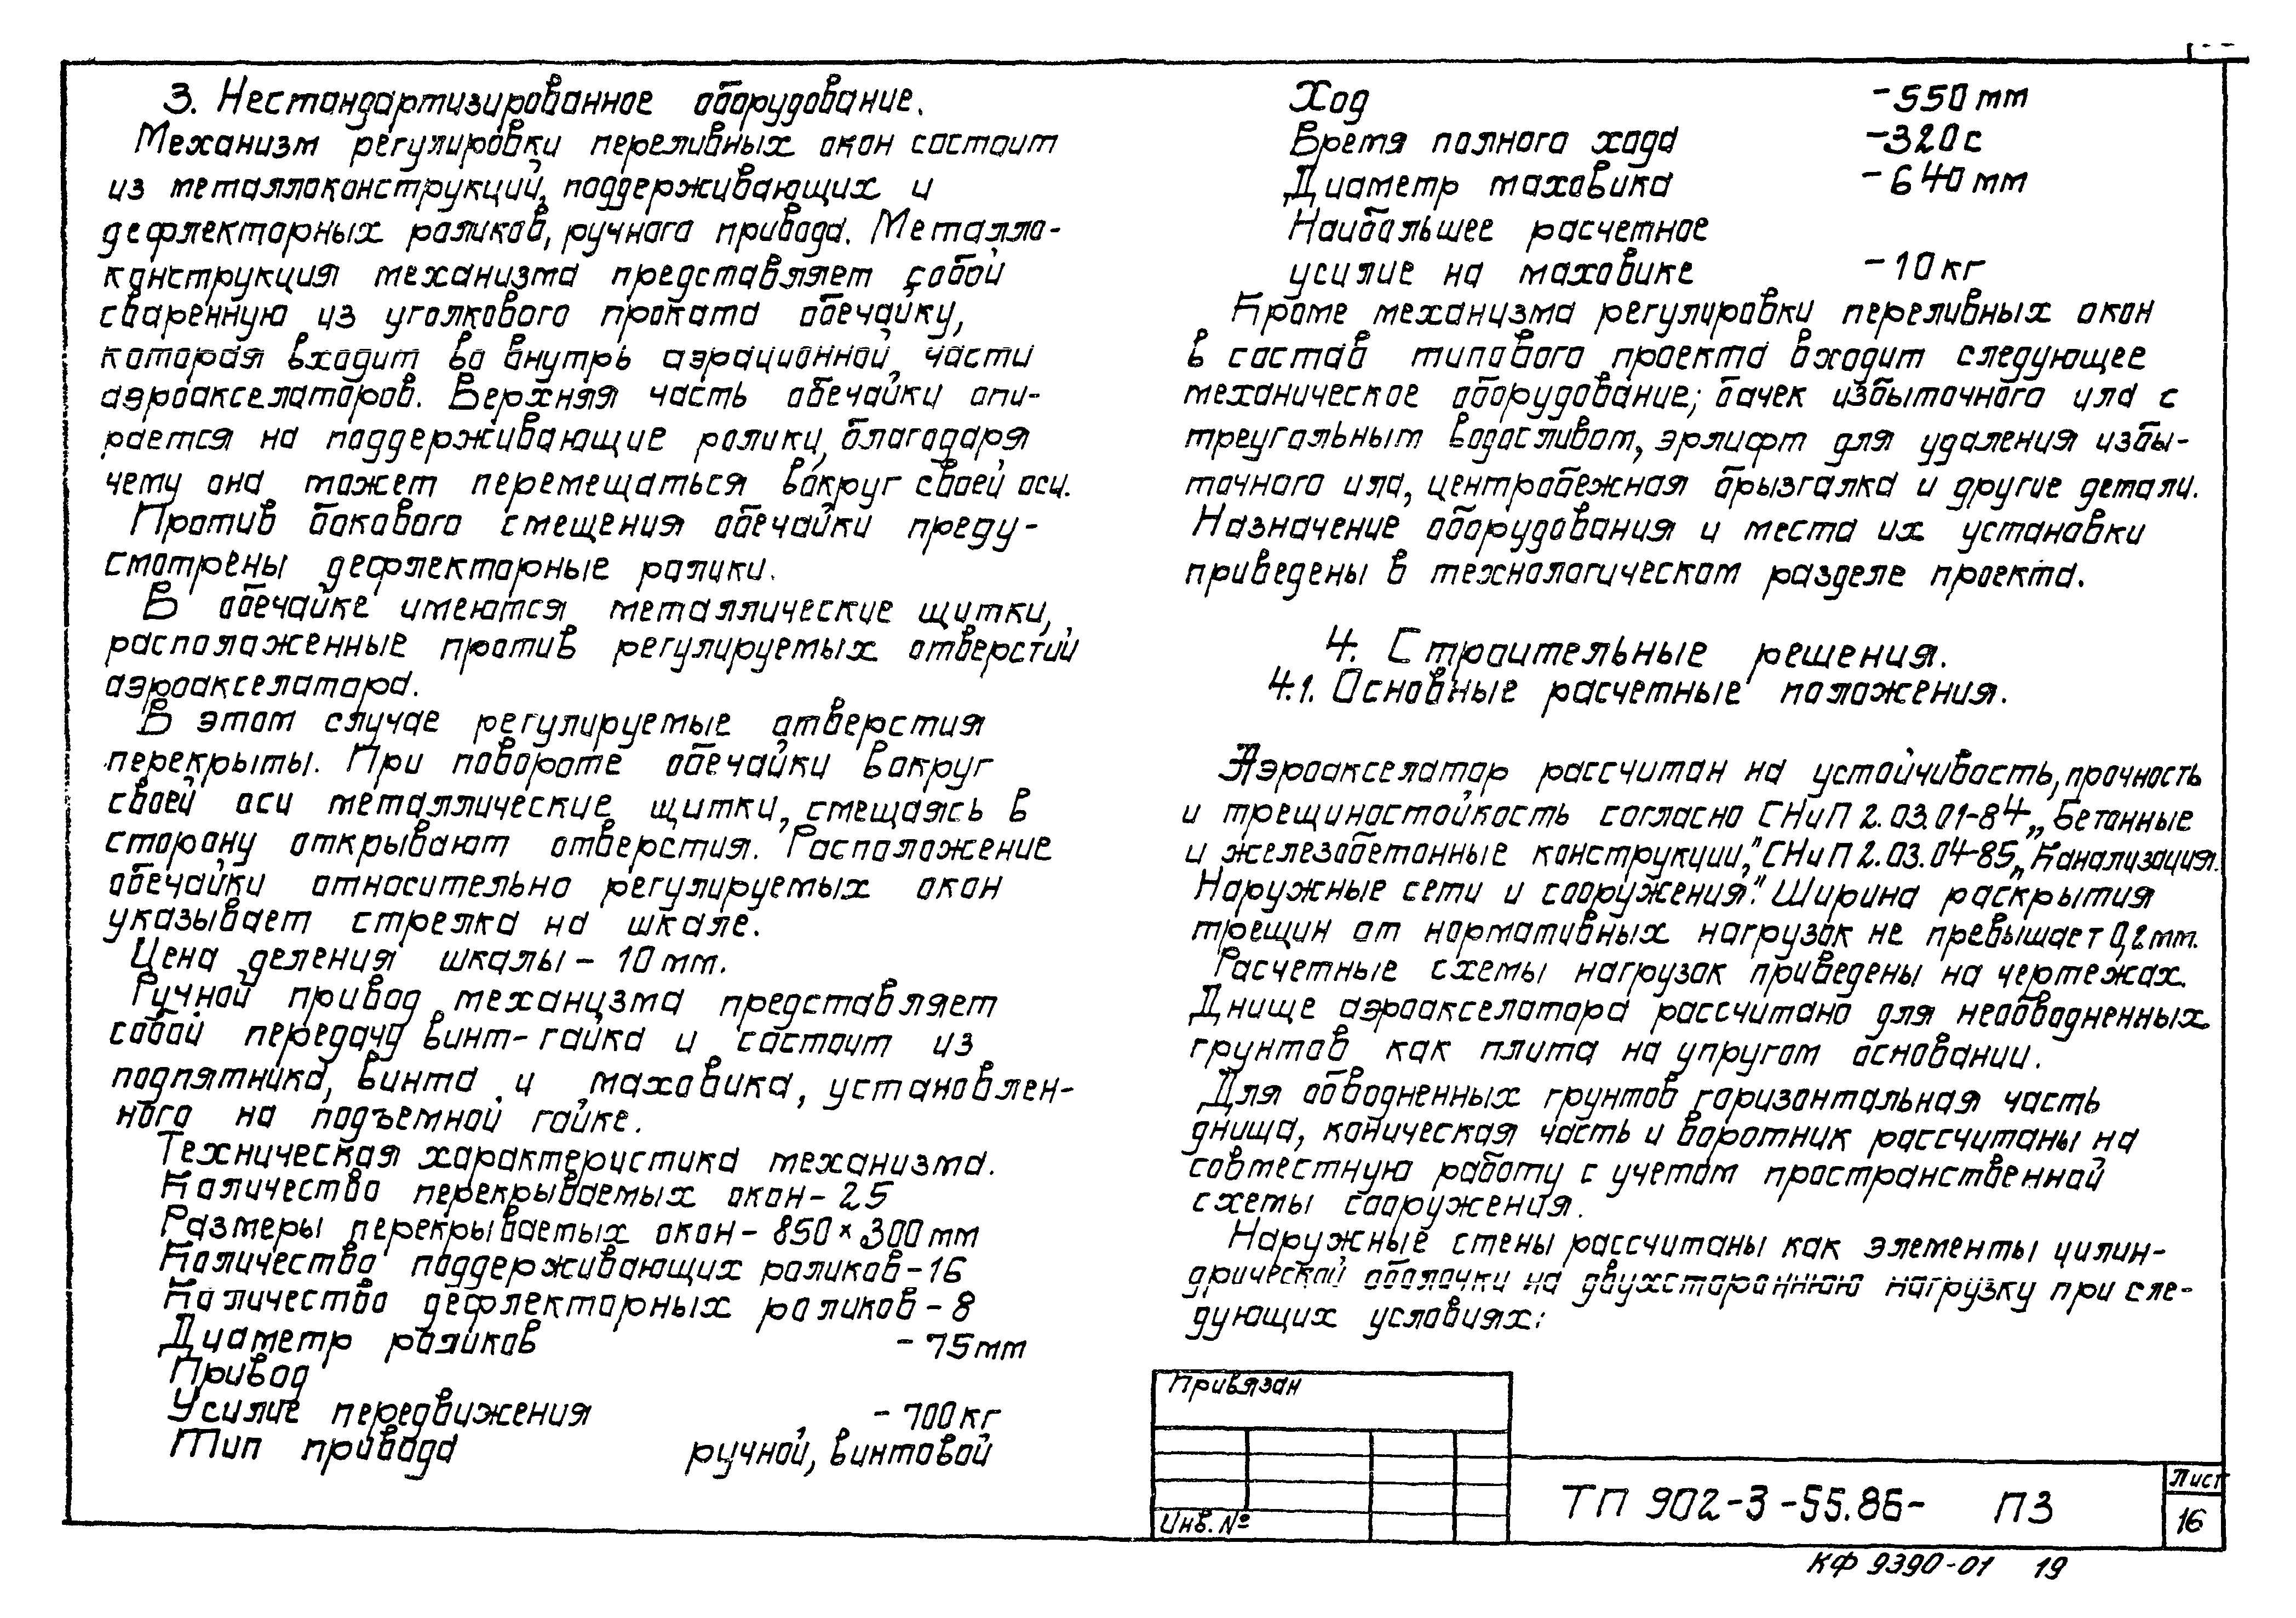 3. Нестандартизированное оборудование.
Механизм регулировки переливных окон состоит
из металлоконструкций, поддерживающих и
дефлекторных роликов, ручного привода. Металло-
конструкция механизма представляет собой
сваренную из уголкового проката обечайку,
которая входит во внутрь аэрационной части
аэроакселаторов. Верхняя часть обечайки опи-
рается на поддерживающие ролики, благодаря
чему она может перемещаться вокруг своей оси.
Против бокового смещения обечайки преду-
смотрены дефлекторные ролики.
В обечайке имеются металлические щитки,
расположенные против регулируемых отверстий
аэроакселатора.
В этом случае регулируемые отверстия
перекрыты. При повороте обечайки вокруг
своей оси металлические щитки, смещаясь в
сторону открывают отверстия. Расположение
обечайки относительно регулируемых окон
указывает стрелка на шкале.
Цена деления шкалы - 10 мм.
Ручной привод механизма представляет
собой передачу винт-гайка и состоит из
подпятника, винта и маховика, установлен-
ного на подъемной гайке.
Техническая характеристика механизма.
Количество перекрываемых окон - 25
Размеры перекрываемых окон - 850 × 300 мм
Количество поддерживающих роликов - 16
Количество дефлекторных роликов - 8
Диаметр роликов - 75 мм
Привод
Усилие передвижения - 700 кг
Тип привода ручной, винтовой
Ход - 550 мм
Время полного хода - 320 с
Диаметр маховика - 640 мм
Наибольшее расчетное
усилие на маховике - 10 кг
Кроме механизма регулировки переливных окон
в состав типового проекта входит следующее
механическое оборудование; бачек избыточного ила с
треугольным водосливом, эрлифт для удаления избы-
точного ила, центробежная брызгалка и другие детали.
Назначение оборудования и места их установки
приведены в технологическом разделе проекта.
4. Строительные решения.
4.1. Основные расчетные положения.
Аэроакселатор рассчитан на устойчивость, прочность
и трещиностойкость согласно СНиП 2.03.01-84 „Бетонные
и железобетонные конструкции," СНиП 2.03.04-85 „Канализация.
Наружные сети и сооружения." Ширина раскрытия
трещин от нормативных нагрузок не превышает 0,2 мм.
Расчетные схемы нагрузок приведены на чертежах.
Днище аэроакселатора рассчитано для необводненных
грунтов как плита на упругом основании.
Для обводненных грунтов горизонтальная часть
днища, коническая часть и воротник рассчитаны на
совместную работу с учетом пространственной
схемы сооружения.
Наружные стены рассчитаны как элементы цилин-
дрической оболочки на двухстороннюю нагрузку при сле-
дующих условиях:
Привязан
Инв. №
ТП 902-3-55.86- ПЗ
Лист
16
КФ 9390-01 19